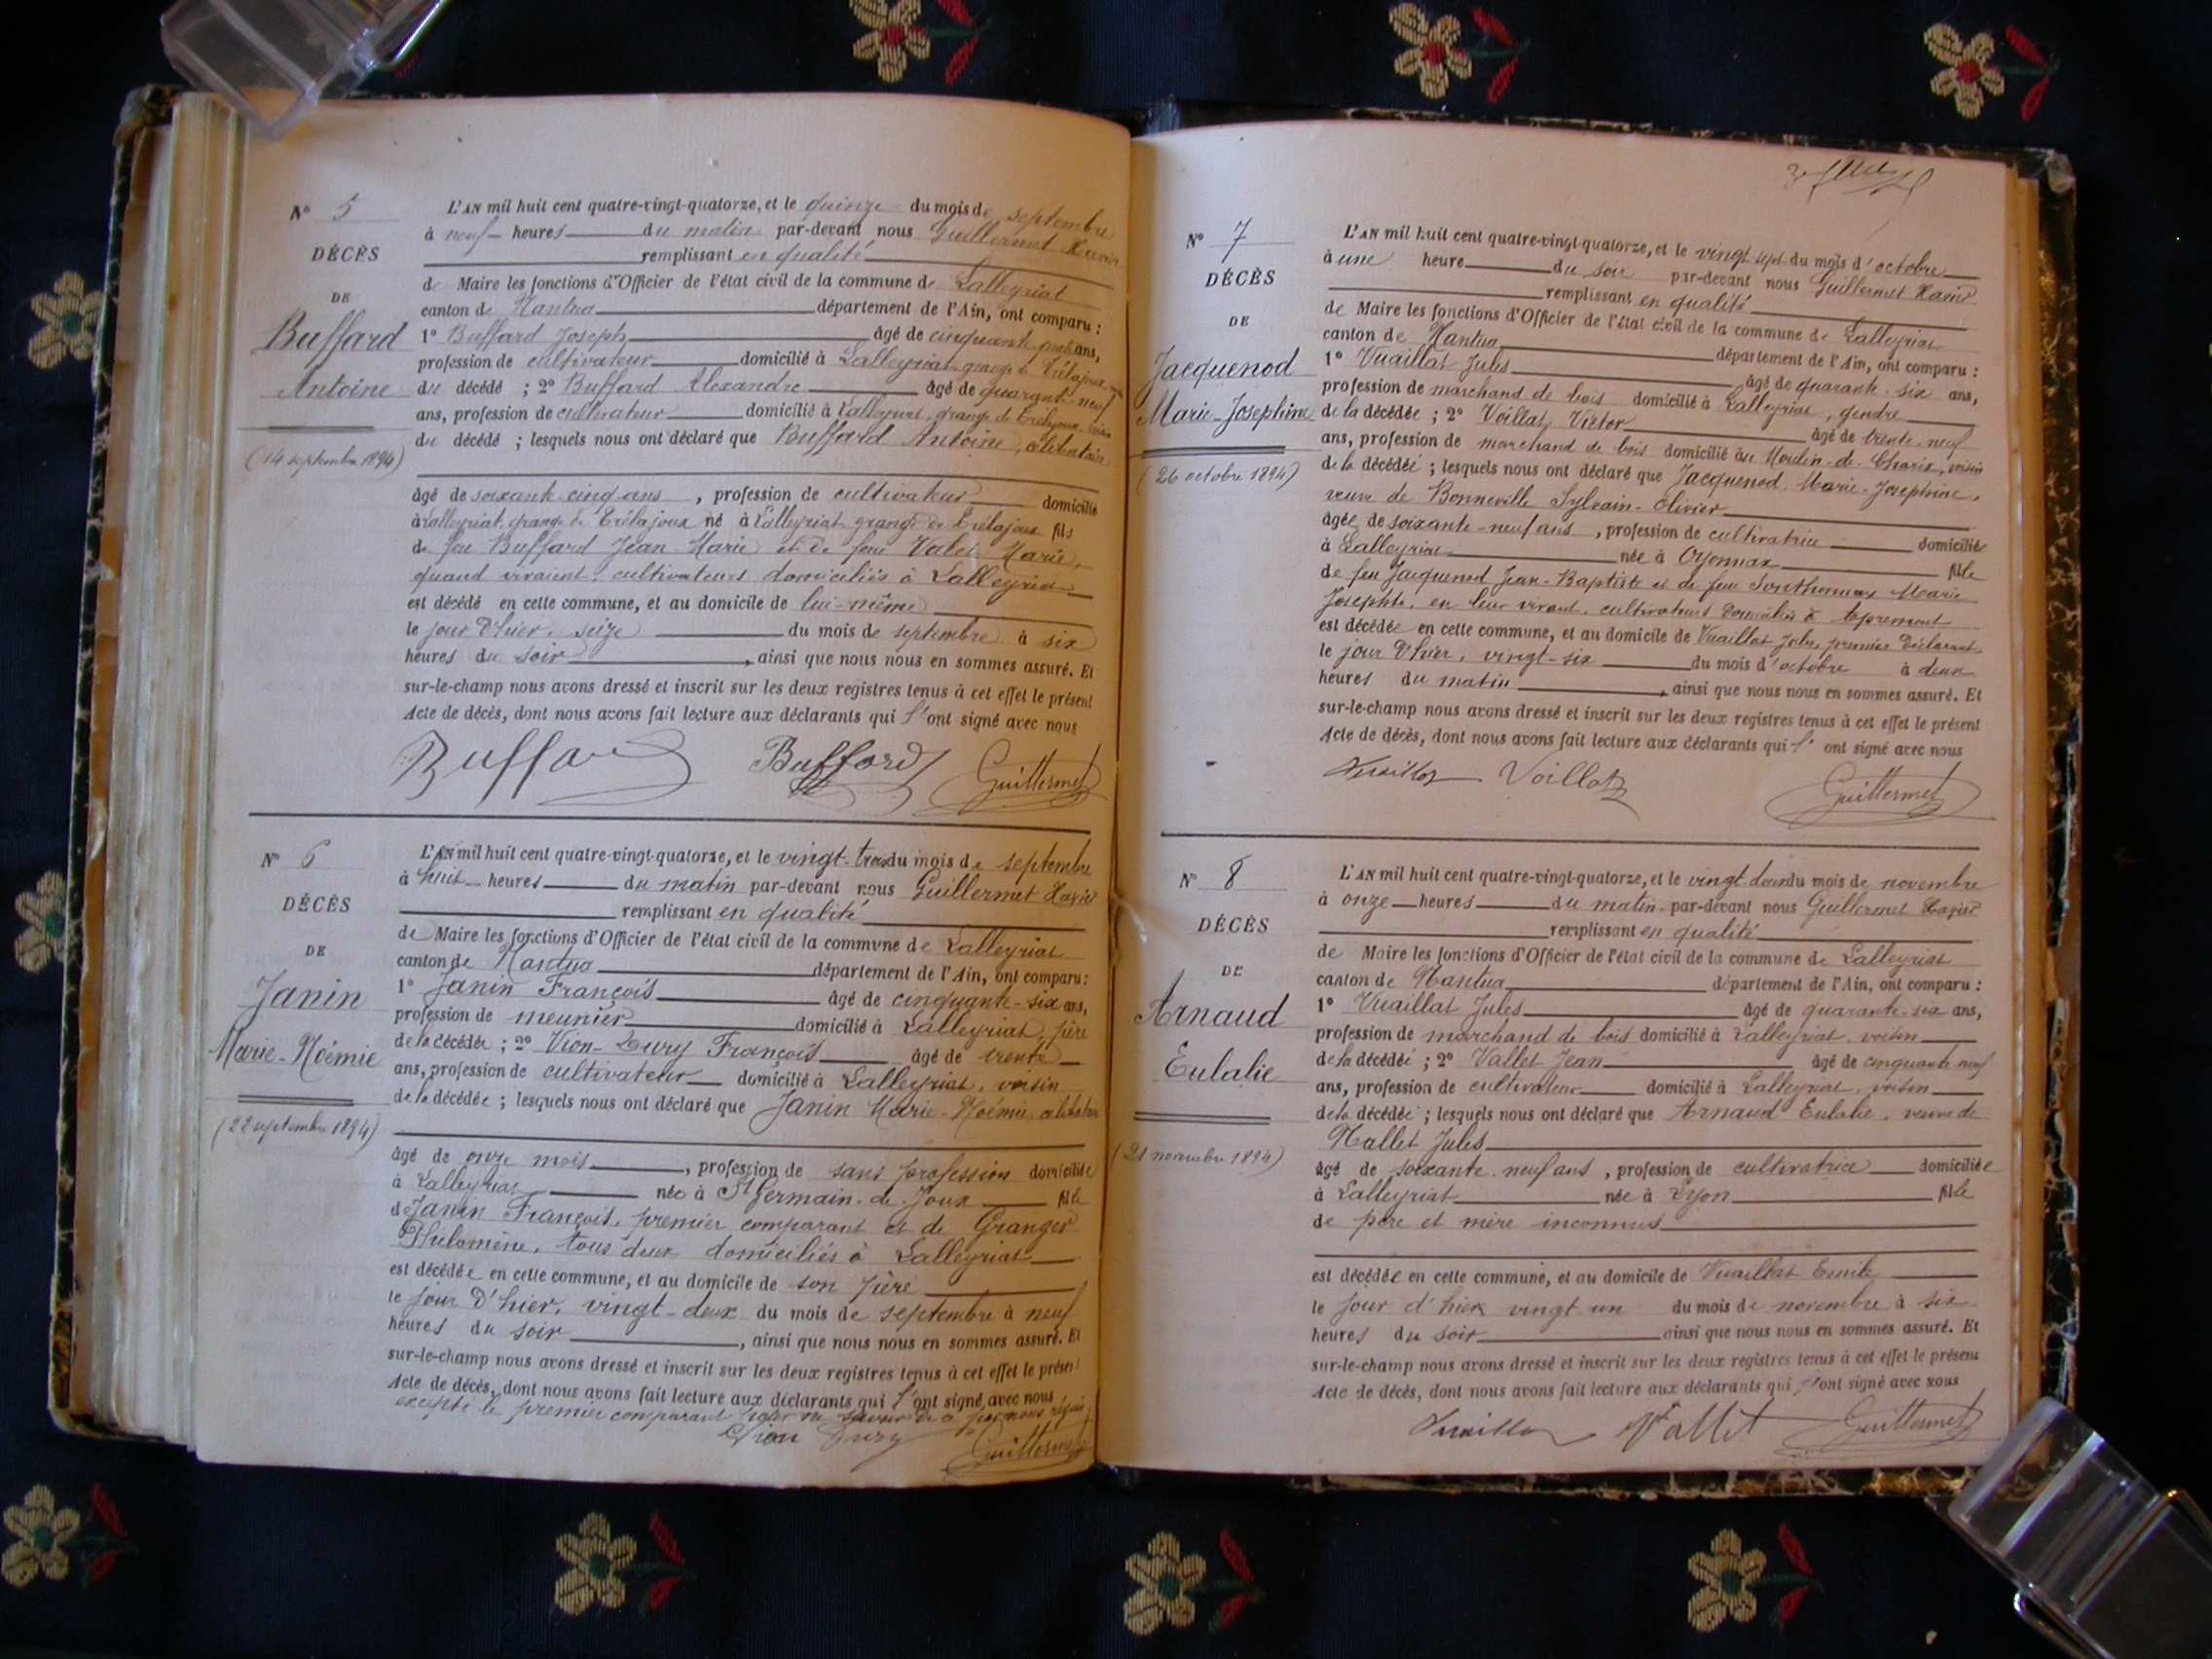 N° 5
DÉCÈS
DE
Buffard
Antoine
(14 septembre 1894)
L'AN mil huit cent quatre-vingt-quatorze, et le quinze du mois de septembre
à neuf heures du matin par-devant nous Guillermet Xavier
remplissant en qualité
de Maire les fonctions d'Officier de l'état civil de la commune de Lalleyriat
canton de Nantua département de l'Ain, ont comparu :
1° Buffard Joseph âgé de cinquante quatre ans,
profession de cultivateur domicilié à Lalleyriat grange de Trélajoux
du décédé ; 2° Buffard Alexandre âgé de quarante-neuf
ans, profession de cultivateur domicilié à Lalleyriat, grange de Trélajoux, voisin
du décédé ; lesquels nous ont déclaré que Buffard Antoine, célibataire
âgé de soixante-cinq ans, profession de cultivateur domicilié
à Lalleyriat grange de Trélajoux né à Lalleyriat grange de Trélajoux fils
de feu Buffard Jean-Marie et de feue Valet Marie,
quand vivaient, cultivateurs domiciliés à Lalleyriat
est décédé en cette commune, et au domicile de lui-même
le jour d'hier, seize du mois de septembre à six
heures du soir, ainsi que nous nous en sommes assuré. Et
sur-le-champ nous avons dressé et inscrit sur les deux registres tenus à cet effet le présent
Acte de décès, dont nous avons fait lecture aux déclarants qui l'ont signé avec nous
Buffard Buffard Guillermet
N° 6
DÉCÈS
DE
Janin
Marie-Noémie
(22 septembre 1894)
L'AN mil huit cent quatre-vingt-quatorze, et le vingt-trois du mois de septembre
à huit heures du matin par-devant nous Guillermet Xavier
remplissant en qualité
de Maire les fonctions d'Officier de l'état civil de la commune de Lalleyriat
canton de Nantua département de l'Ain, ont comparu :
1° Janin François âgé de cinquante-six ans,
profession de meunier domicilié à Lalleyriat, père
de la décédée ; 2° Vion-Dury François âgé de trente
ans, profession de cultivateur domicilié à Lalleyriat, voisin
de la décédée ; lesquels nous ont déclaré que Janin Marie-Noémie, célibataire
âgé de onze mois, profession de sans profession domiciliée
à Lalleyriat née à St Germain-de-Joux fille
de Janin François, premier comparant et de Granger
Philomène, tous deux domiciliés à Lalleyriat
est décédée en cette commune, et au domicile de son père
le jour d'hier, vingt-deux du mois de septembre à neuf
heures du soir, ainsi que nous nous en sommes assuré. Et
sur-le-champ nous avons dressé et inscrit sur les deux registres tenus à cet effet le présent
Acte de décès, dont nous avons fait lecture aux déclarants qui l'ont signé avec nous
excepté le premier comparant pour ne savoir de ce par nous requis
Vion Dury Guillermet
N° 7
DÉCÈS
DE
Jacquenod
Marie-Josephine
(26 octobre 1894)
L'AN mil huit cent quatre-vingt-quatorze, et le vingt sept du mois d'octobre
à une heure du soir par-devant nous Guillermet Xavier
remplissant en qualité
de Maire les fonctions d'Officier de l'état civil de la commune de Lalleyriat
canton de Nantua département de l'Ain, ont comparu :
1° Vuaillat Jules âgé de quarante-six ans,
profession de marchand de bois domicilié à Lalleyriat, gendre
de la décédée ; 2° Voillat Victor âgé de trente-neuf
ans, profession de marchand de bois domicilié au Moulin-de-Charix, voisin
de la décédée ; lesquels nous ont déclaré que Jacquenod Marie-Josephine,
veuve de Bonneville Sylvain-Olivier
âgée de soixante-neuf ans, profession de cultivatrice domiciliée
à Lalleyriat née à Oyonnax fille
de feu Jacquenod Jean-Baptiste et de feue Sonthonnax Marie
Josephte, en leur vivant, cultivateurs domiciliés à Apremont
est décédée en cette commune, et au domicile de Vuaillat Jules, premier déclarant
le jour d'hier, vingt-six du mois d'octobre à deux
heures du matin, ainsi que nous nous en sommes assuré. Et
sur-le-champ nous avons dressé et inscrit sur les deux registres tenus à cet effet le présent
Acte de décès, dont nous avons fait lecture aux déclarants qui l'ont signé avec nous
Vuaillat Voillat Guillermet
N° 8
DÉCÈS
DE
Arnaud
Eulalie
(21 novembre 1894)
L'AN mil huit cent quatre-vingt-quatorze, et le vingt-deux du mois de novembre
à onze heures du matin par-devant nous Guillermet Xavier
remplissant en qualité
de Maire les fonctions d'Officier de l'état civil de la commune de Lalleyriat
canton de Nantua département de l'Ain, ont comparu :
1° Vuaillat Jules âgé de quarante-six ans,
profession de marchand de bois domicilié à Lalleyriat, voisin
de la décédée ; 2° Vallet Jean âgé de cinquante-neuf
ans, profession de cultivateur domicilié à Lalleyriat, voisin
de la décédée ; lesquels nous ont déclaré que Arnaud Eulalie, veuve de
Nallet Jules
âgé de soixante-neuf ans, profession de cultivatrice domiciliée
à Lalleyriat née à Lyon fille
de père et mère inconnus
est décédée en cette commune, et au domicile de Vuaillat Emile
le jour d'hier vingt un du mois de novembre à six
heures du soir ainsi que nous nous en sommes assuré. Et
sur-le-champ nous avons dressé et inscrit sur les deux registres tenus à cet effet le présent
Acte de décès, dont nous avons fait lecture aux déclarants qui l'ont signé avec nous
Vuaillat Vallet Guillermet